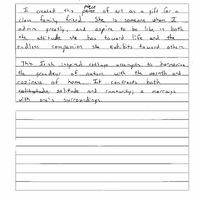 piece
I created this piece of art as a gift for a
close family friend. She is someone whom I
admire greatly, and aspire to be like in both
the attitude she has toward life and the
endless compassion she exhibits toward others.
This Irish inspired collage attempts to harmonize
the grandeur of nature with the warmth and
coziness of home. It contrasts both
solitude and community, a marriage
with one's surroundings.